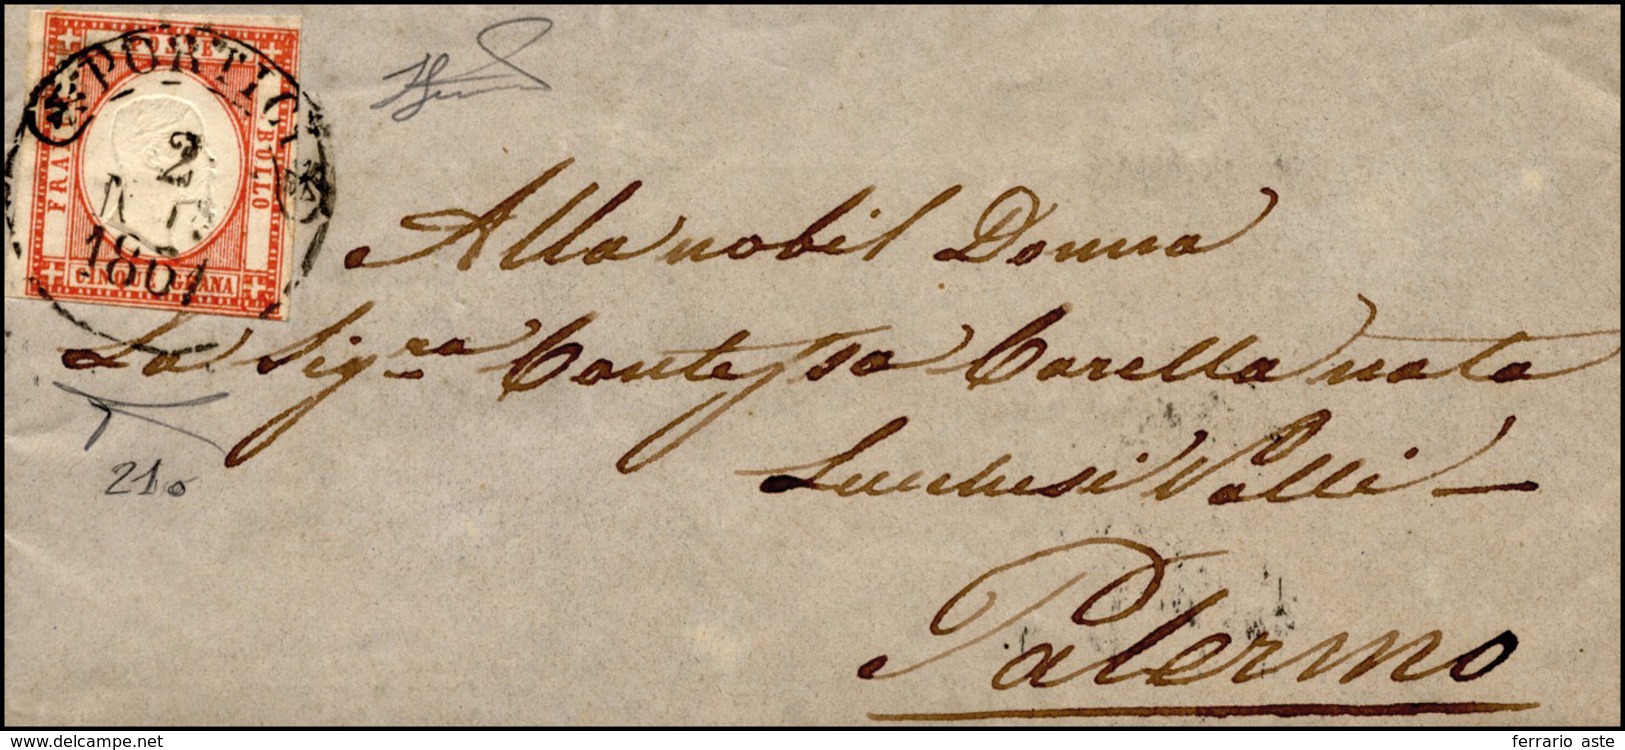 POSTE
FRAN
BOLLO
CINQUE GRANA
PORTICI
2
1861
Alla nobil Donna
La Sig.ra Contessa Carella nata
Lucchesi Palli —
Palermo
210
delcampe.net
ferrario aste